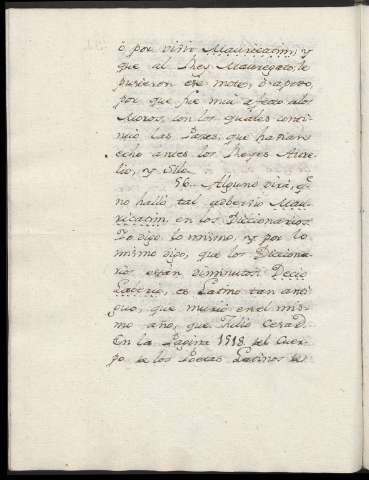 ò por vivir Mauricatim, y
que al Rey Mauregato, le
pusieron ese mote, ò apodo,
por que fue mui afecto a los
Moros, con los quales conti-
nuó las Pazes, que havian
echo antes los Reyes Aure-
lio, y Silo.
56. Alguno dirá, q.
no halló tal adverbio Mau-
ricatim en los Diccionarios.
Yo digo lo mismo, y por lo
mismo digo, que los Dicciona-
rios están diminutos. Decio
Laberio, es Latino tan anti-
guo, que murio en el mis-
mo año, que Julio Cesar.
En la Pagina 1518 del Cuer-
po de los Poetas Latinos de